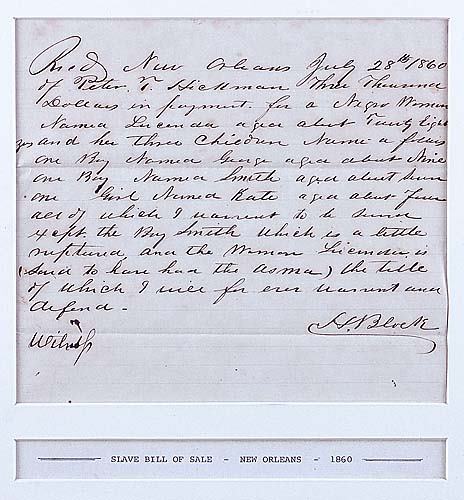 Recd New Orleans July 28th 1860
of Peter. T. Hickman Three Thousand
Dollars in payment for a Negro Woman
Named Lucinda aged about Twenty Eight
yrs and her three Children Name a follows
one Boy Named George aged about Nine
one Boy Named Smith aged about Seven
one Girl Named Kate aged about four
all of which I warrent to be sound
except the Boy Smith which is a little
ruptured and the Woman Lucinda is
(Said to have had the asma) the title
of which I will for ever warrent and
defend -
H. Block
Witness
SLAVE BILL OF SALE - NEW ORLEANS - 1860